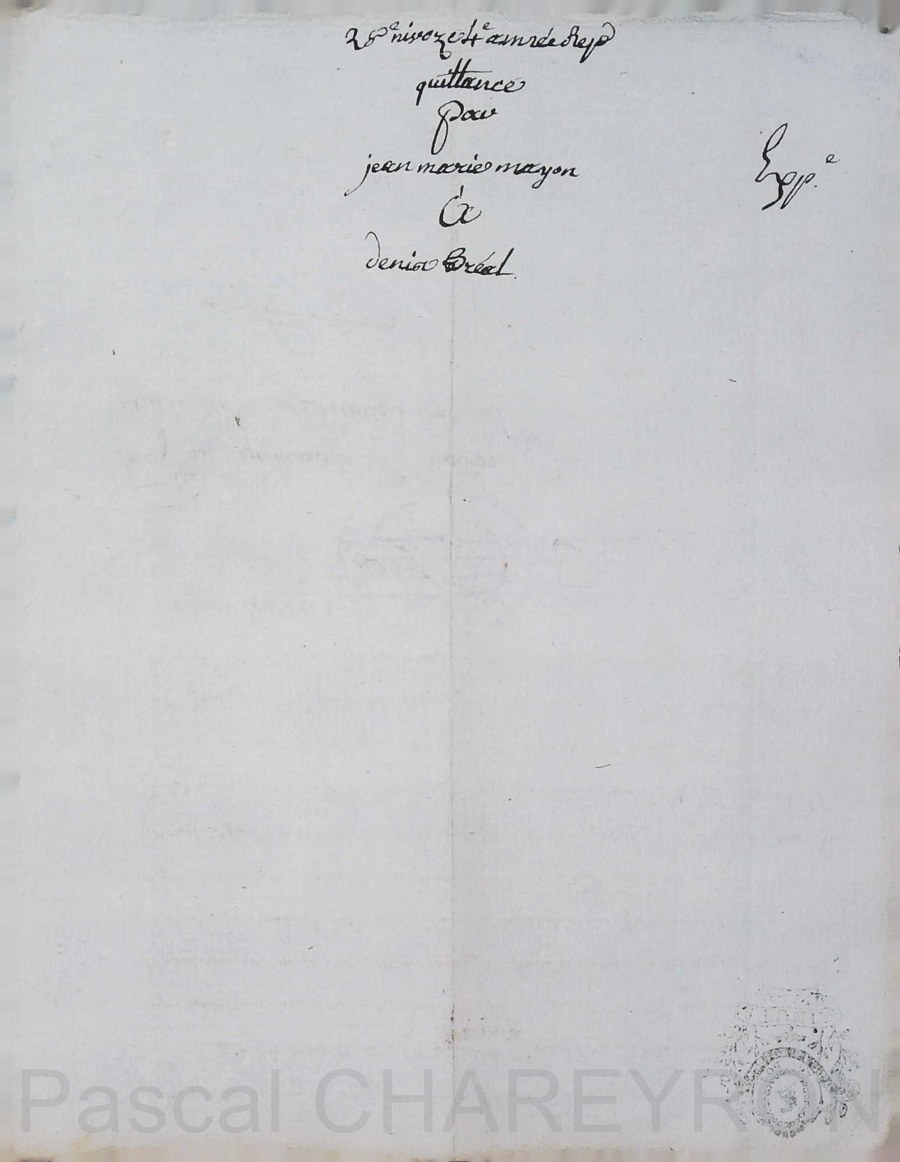 28e nivoze 4e année Rep
quittance
pour
jean marie mayon
Exp.e
à
denis Bréal.
Pascal CHAREYRON